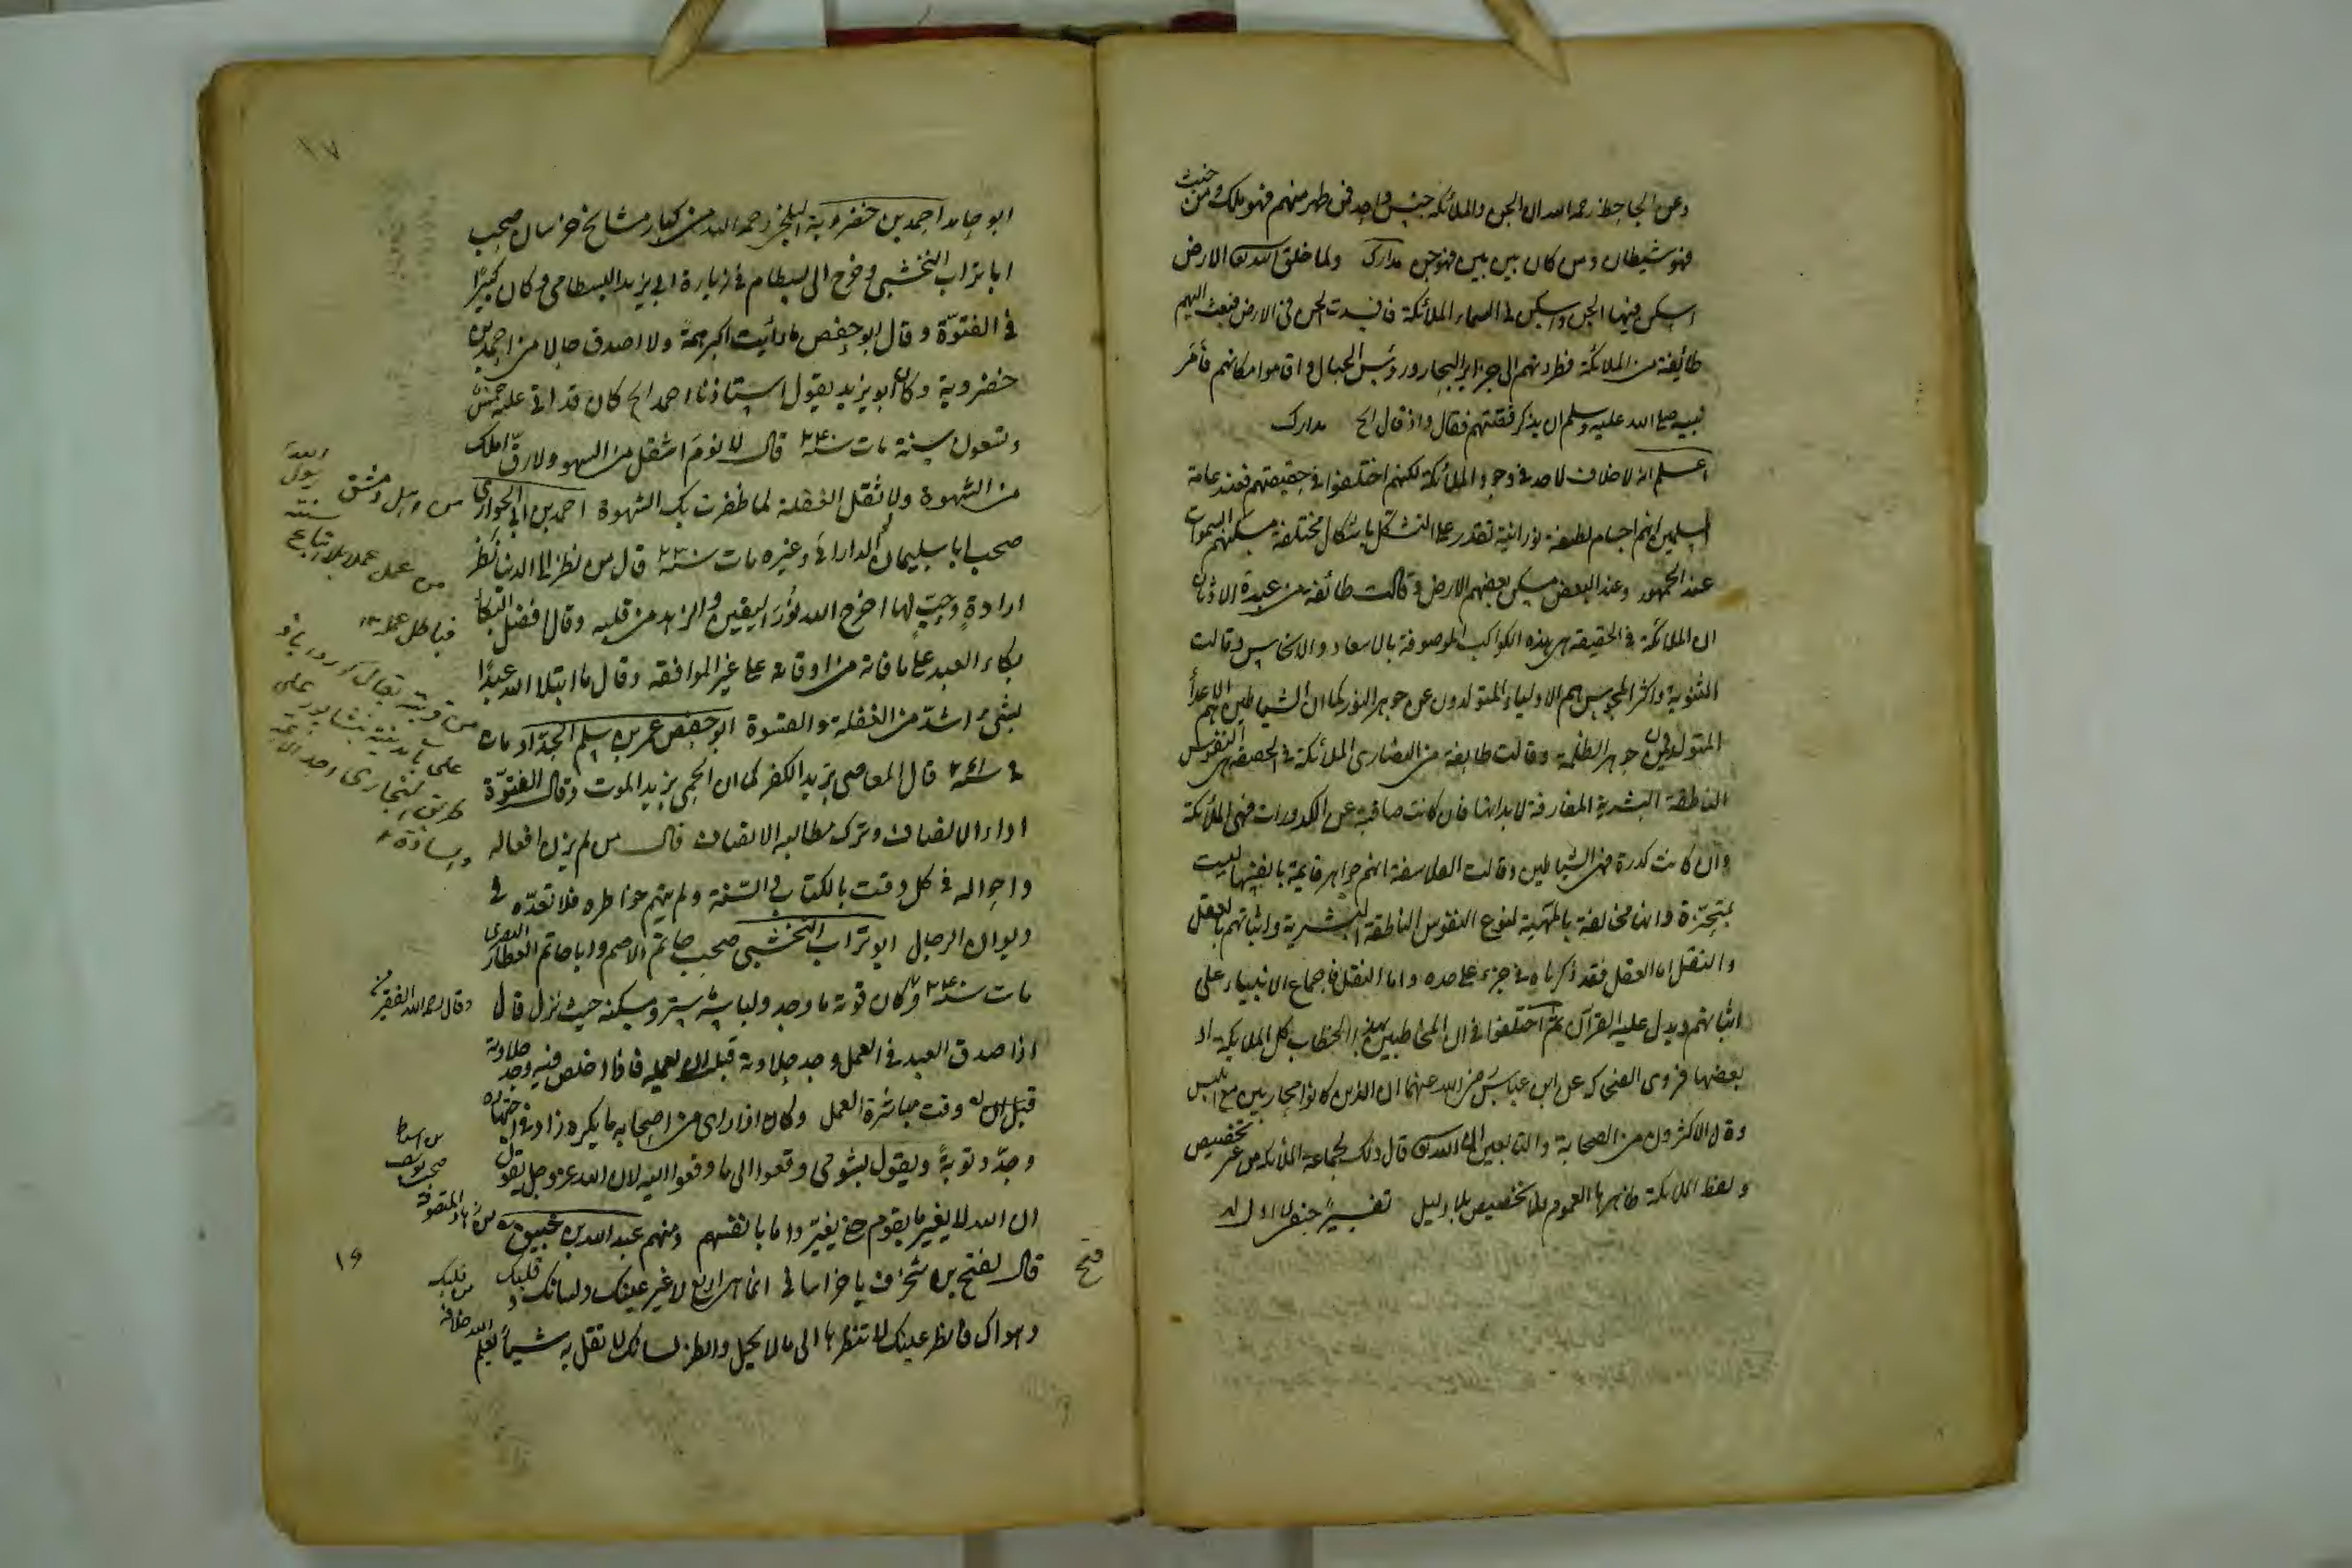 وعن الجاحظ رحمه الله ان الجن والملائكة جنس واحد فمن طهر منهم فهو ملك ومن خبث
فهو شيطان ومن كان بين بين فهو جن مدارك ولما خلق الله تع الارض
اسكن فيها الجن واسكن في السماء الملائكة فافسدت الجن في الارض فبعث اليهم
طائفة من الملائكة فطردتهم الى جزاير البحار ورؤس الجبال واقاموا مكانهم فأمر
نبيه صلى الله عليه وسلم ان يذكر قصتهم فقال واذ قال الخ مدارك
اعلم انه لا خلاف لاحد في وجود الملائكة لكنهم اختلفوا في حقيقتهم فعند عامة
المسلمين انهم اجسام لطيفة نورانية تقدر على التشكل باشكال مختلفة مسكنهم السموات
عند الجمهور وعند البعض مسكن بعضهم الارض وقالت طائفة من عبدة الاوثان
ان الملائكة في الحقيقة هي هذه الكواكب الموصوفة بالاسعاد والانحاس وقالت
الثنوية واكثر المجوس هم الاولياء المتولدون عن جوهر النور كما ان الشياطين هم الاعداء
المتولدون من جوهر الظلمة وقالت طايفة من النصارى الملائكة في الحقيقة هي النفوس
الناطقة البشرية المفارقة لابدانها فان كانت صافية عن الكدورات فهي الملائكة
وان كانت كدرة فهي الشياطين وقالت الفلاسفة انهم جواهر قايمة بانفسها ليست
بمتحيزة وانها مخالفة بالمهية لنوع النفوس الناطقة البشرية واثباتهم بالعقل
والنقل اما العقل فقد ذكرناه في جزء على حده واما النقل فاجماع الانبياء على
اثباتهم ويدل عليه القرآن ثم اختلفوا في ان المخاطبين بهذا الخطاب كل الملايكة او
بعضها فروى الضحاك عن ابن عباس رضي الله عنهما ان الذين كانوا محاربين مع ابليس
وقال الاكثرون من الصحابة والتابعين ان الله تع قال ذلك لجماعة الملائكة من غير تخصيص
ولفظ الملايكة ظاهرها العموم فلا تخصيص بلا دليل تفسير
ابو حامد احمد بن خضروية البلخي رحمه الله من كبار مشايخ خراسان صحب
ابا تراب النخشبي وخرج الى بسطام في زيارة ابي يزيد البسطامي وكان كبيرا
في الفتوّة وقال ابو حفص ما رأيت اكبر همة ولا اصدق حالا من احمد بن
خضروية وكان ابو يزيد يقول استاذنا احمد الخ كان قد اتى عليه خمس
وتسعون سنة مات سنة ٢٤٠ قال لا نوم اثقل من السهو ولا رقّ املك
من الشهوة ولو لا ثقل الغفلة لما ظفرت بك الشهوة احمد بن ابي الحواري
صحب ابا سليمان الداراني وغيره مات سنة ٢٣٠ قال من نظر الى الدنيا نظر
ارادة وحب لها اخرج الله نور اليقين والزهد من قلبه وقال افضل البكاء
بكاء العبد على ما فاته من اوقاته على غير الموافقة وقال ما ابتلا الله عبدا
بشيء اشدّ من الغفلة والقسوة ابو حفص عمر بن سلم الحدّاد مات
في سنة قال المعاصي بريد الكفر كما ان الحمى بريد الموت وقال الفتوّة
اداء الانصاف وترك مطالبة الانصاف قال من لم يزن افعاله
واحواله في كل وقت بالكتاب والسّنة ولم يتهم خواطره فلا تعدّه في
ديوان الرجال ابو تراب النخشبي صحب حاتم الاصم وابا حاتم العطار البصري
مات سنة وكان قوته ما وجد ولباسه ستر ومسكنه حيث نزل قال
اذا صدق العبد في العمل وجد حلاوته قبل ان يعمله فاذا اخلص فيه وجد حلاوته
وقت مباشرة العمل وكان اذا راى من اصحابه ما يكره زاد في اجتهاده
وجدّد توبة ويقول بشومي وقعوا الى ما وقعوا اليه لان الله عز وجل يقول
ان الله لا يغير ما بقوم حتى يغيروا ما بانفسهم ومنهم عبد الله بن خبيق من زهاد المتصوفة
قال لفتح بن شخرف يا خراساني انما هي اربع لا غير عينك ولسانك وقلبك
وهواك فانظر عينك لا تنظر بها الى ما لا يحل وانظر لسانك لا تقل به شيأ يعلم الله خلافه
من اهل دمشق
من عمل عملا بلا اتباع سنة رسول الله
فباطل عمله
من قرية يقال كورداباذ
على باب مدينة نيشابور على
طريق البخارى احد الائمة
والسادة
وقال رحمه الله الفقير
من قلبك
فتح
١٦